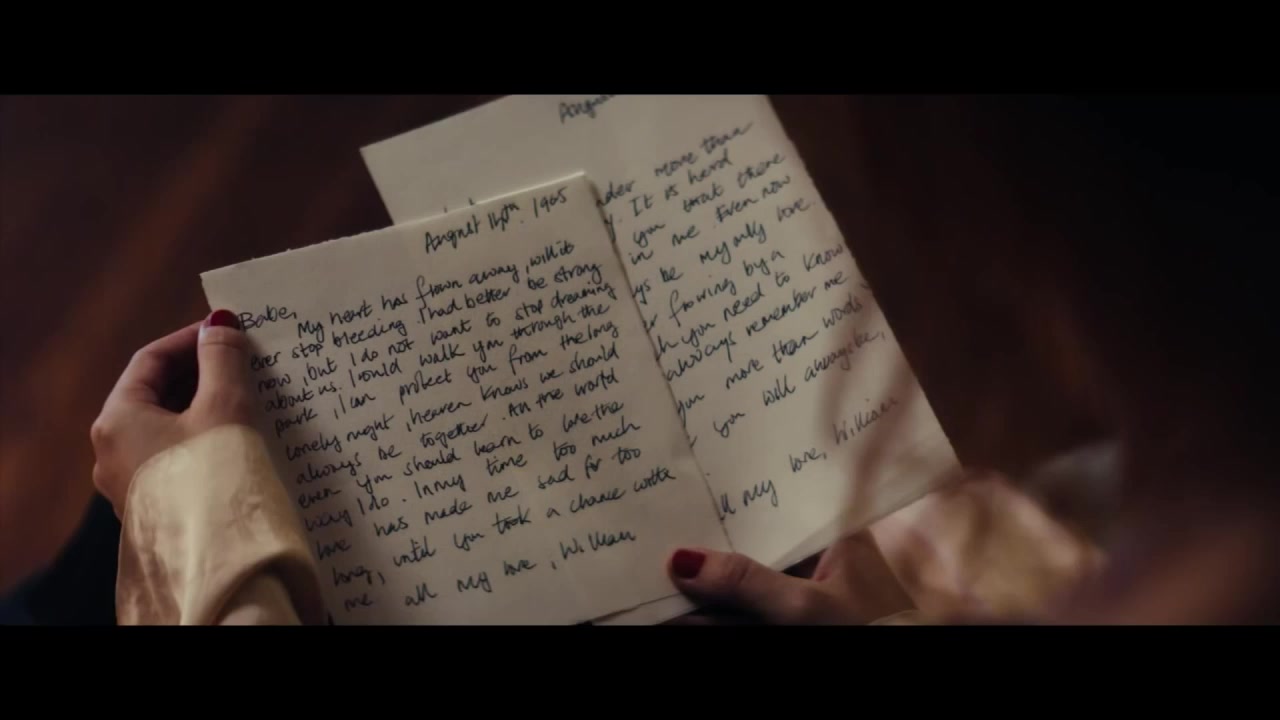 August 14th. 1965
Babe,
My heart has flown away, will it
ever stop bleeding. I had better be strong
now, but I do not want to stop dreaming
about us. I could walk you through the
park, I can protect you from the long
lonely night, heaven knows we should
always be together. All the world
even you should learn to love the
way I do. In my time too much
love has made me sad for too
long, until you took a chance with
me all my love, William
Augu
more than
. It is hard
you that there
in me. Even now
be my only love.
by a
you need to know
always remember me
you more than words
you will always be,
ll my love, William